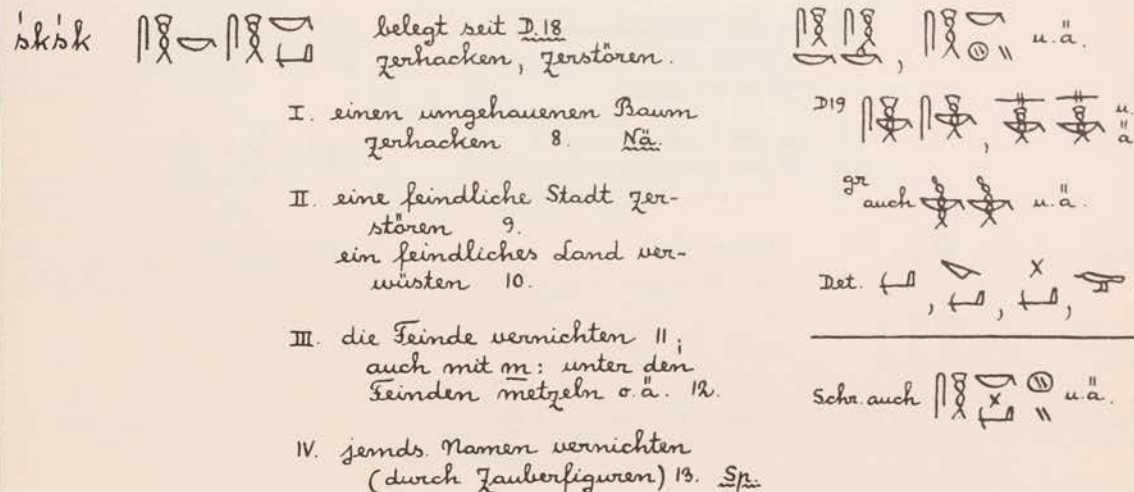 śkśk
belegt seit D. 18
zerhacken, zerstören.
I. einen umgehauenen Baum
zerhacken 8. Nä.
II. eine feindliche Stadt zer-
stören 9.
ein feindliches Land ver-
wüsten 10.
III. die Feinde vernichten 11;
auch mit m: unter den
Feinden metzeln o.ä. 12.
IV. jemds. Namen vernichten
(durch Zauberfiguren) 13. Sp.
, u.ä.
D19 , u. ä
gr auch u.ä.
Det. , , ,
Schr. auch u.ä.